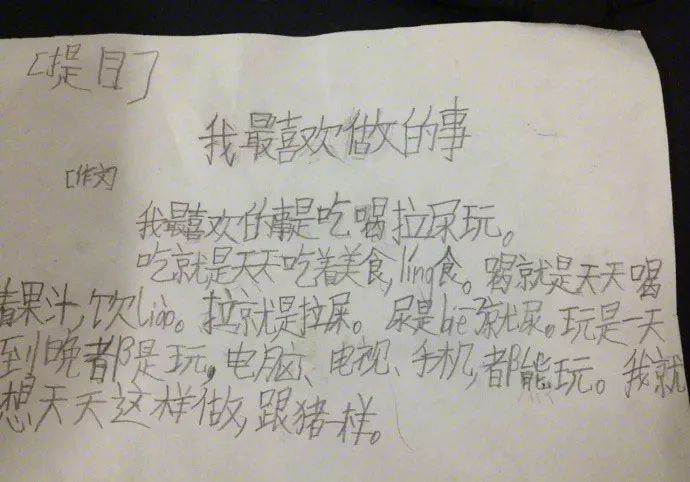 [提目]
我最喜欢做的事
[作文]
我最喜欢的事是吃喝拉尿玩。
吃就是天天吃着美食,líng食。喝就是天天喝
着果汁,饮liào。拉就是拉屎。尿是biē了就尿。玩是一天
到晚都是玩,电脑、电视、手机,都能玩。我就
想天天这样做,跟猪一样。